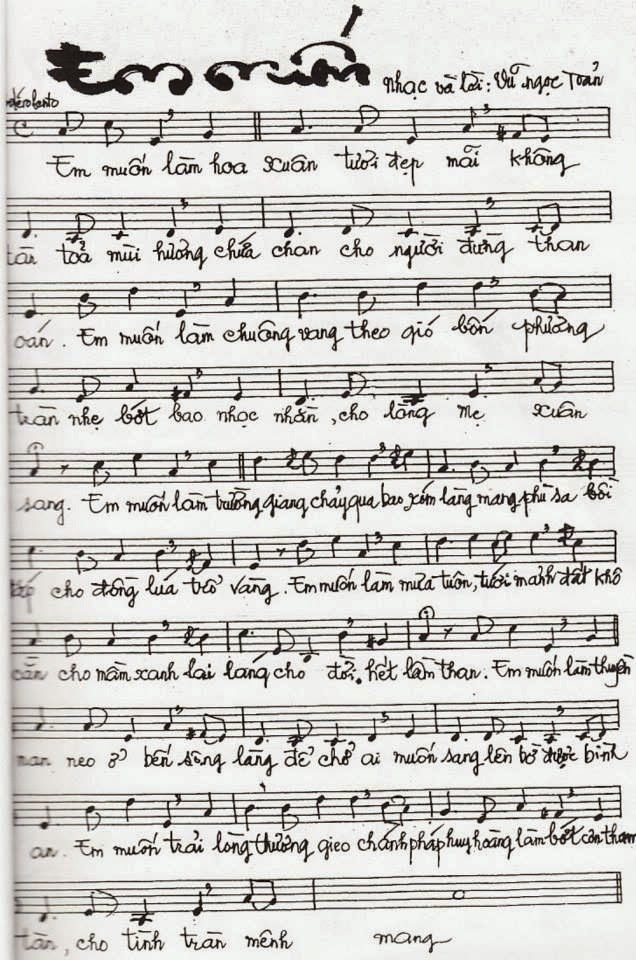 Em muốn
Nhạc và lời: Vũ Ngọc Toản
Em muốn làm hoa xuân tươi đẹp mãi không
tàn toả mùi hương chứa chan cho người đừng than
oán. Em muốn làm chuông vang theo gió bốn phương
trần nhẹ bớt bao nhọc nhằn, cho lắng mẹ xuân
sang. Em muốn làm trường giang chảy qua bao xóm làng mang phù sa bồi
đắp cho đồng lúa trổ vàng. Em muốn làm mưa tuôn, tưới mảnh đất khô
cằn cho mầm xanh lai láng cho đời hết lầm than. Em muốn làm thuyền
nan neo ở bến sông lặng để chở ai muốn sang lên bờ được bình
an. Em muốn trải lòng thương gieo chánh pháp huy hoàng làm bớt cơn tham
tàn, cho tình tràn mênh mang